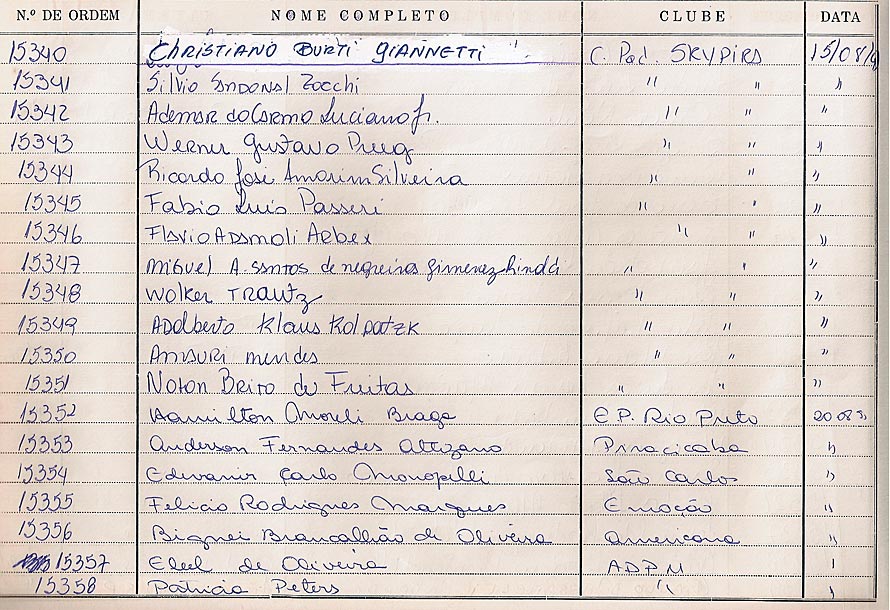 N.º DE ORDEM NOME COMPLETO CLUBE DATA
15340 CHRISTIANO BURTI GIANNETTI C. Pad. SKYDIRS 15/08/9
15341 Silvio Sandoval Zocchi " " "
15342 Ademar do Carmo Luciano Jr. " " "
15343 Werner Gustavo " " "
15344 Ricardo José Amorim Silveira " " "
15345 Fabio Luis Passeri " " "
15346 Flavio Adamoli Aebex " " "
15347 Miguel A. Santos de negreiros Gimenez " " "
15348 Wolker Trautz " " "
15349 Adalberto Klaus Kolpatzk " " "
15350 Amauri mendes " " "
15351 Naton Brito de Freitas " " "
15352 Hamilton Moreli Braga E P. Rio Preto 20 08 9
15353 Anderson Fernandes Piracicaba "
15354 Edevanir Carlo Monopelli São Carlos "
15355 Felicio Rodrigues Marques Emoção "
15356 Brancalhão de Oliveira Americana "
15357 de Oliveira ADPM "
15358 Patricia Peters " "